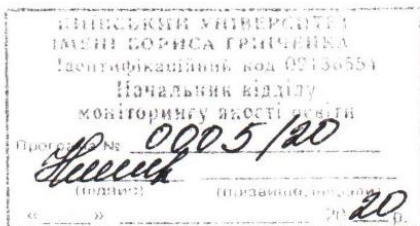 КИЇВСЬКИЙ УНІВЕРСИТЕТ
ІМЕНІ БОРИСА ГРІНЧЕНКА
Ідентифікаційний код 02136554
Начальник відділу
моніторингу якості освіти
Програма № 0005/20
(підпис) (прізвище, ініціали)
« » 2020 р.